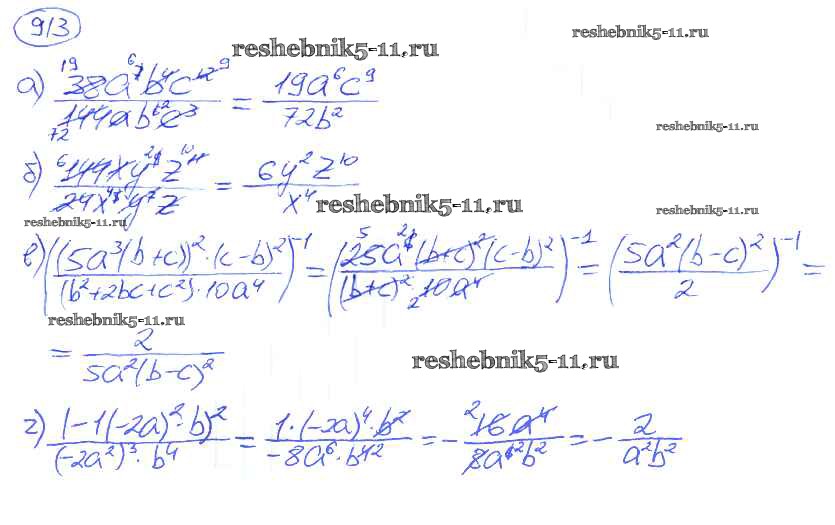 913
reshebnik5-11.ru
reshebnik5-11.ru
а) 38a⁷b⁴c¹²/144ab⁶c³ = 19a⁶c⁹/72b²
reshebnik5-11.ru
б) 144xy⁹z¹¹/24x⁵y⁷z = 6y²z¹⁰/x⁴
reshebnik5-11.ru
reshebnik5-11.ru
reshebnik5-11.ru
в) ((5a³(b+c))²·(c-b)²/(b²+2bc+c²)·10a⁴)⁻¹ = (25a⁶(b+c)²(c-b)²/(b+c)²·10a⁴)⁻¹ = (5a²(b-c)²/2)⁻¹ =
reshebnik5-11.ru
= 2/5a²(b-c)²
reshebnik5-11.ru
г) (-1(-2a)²·b)²/(-2a²)³·b⁴ = 1·(-2a)⁴·b²/-8a⁶·b⁴ = -16a⁴/8a⁶b² = -2/a²b²